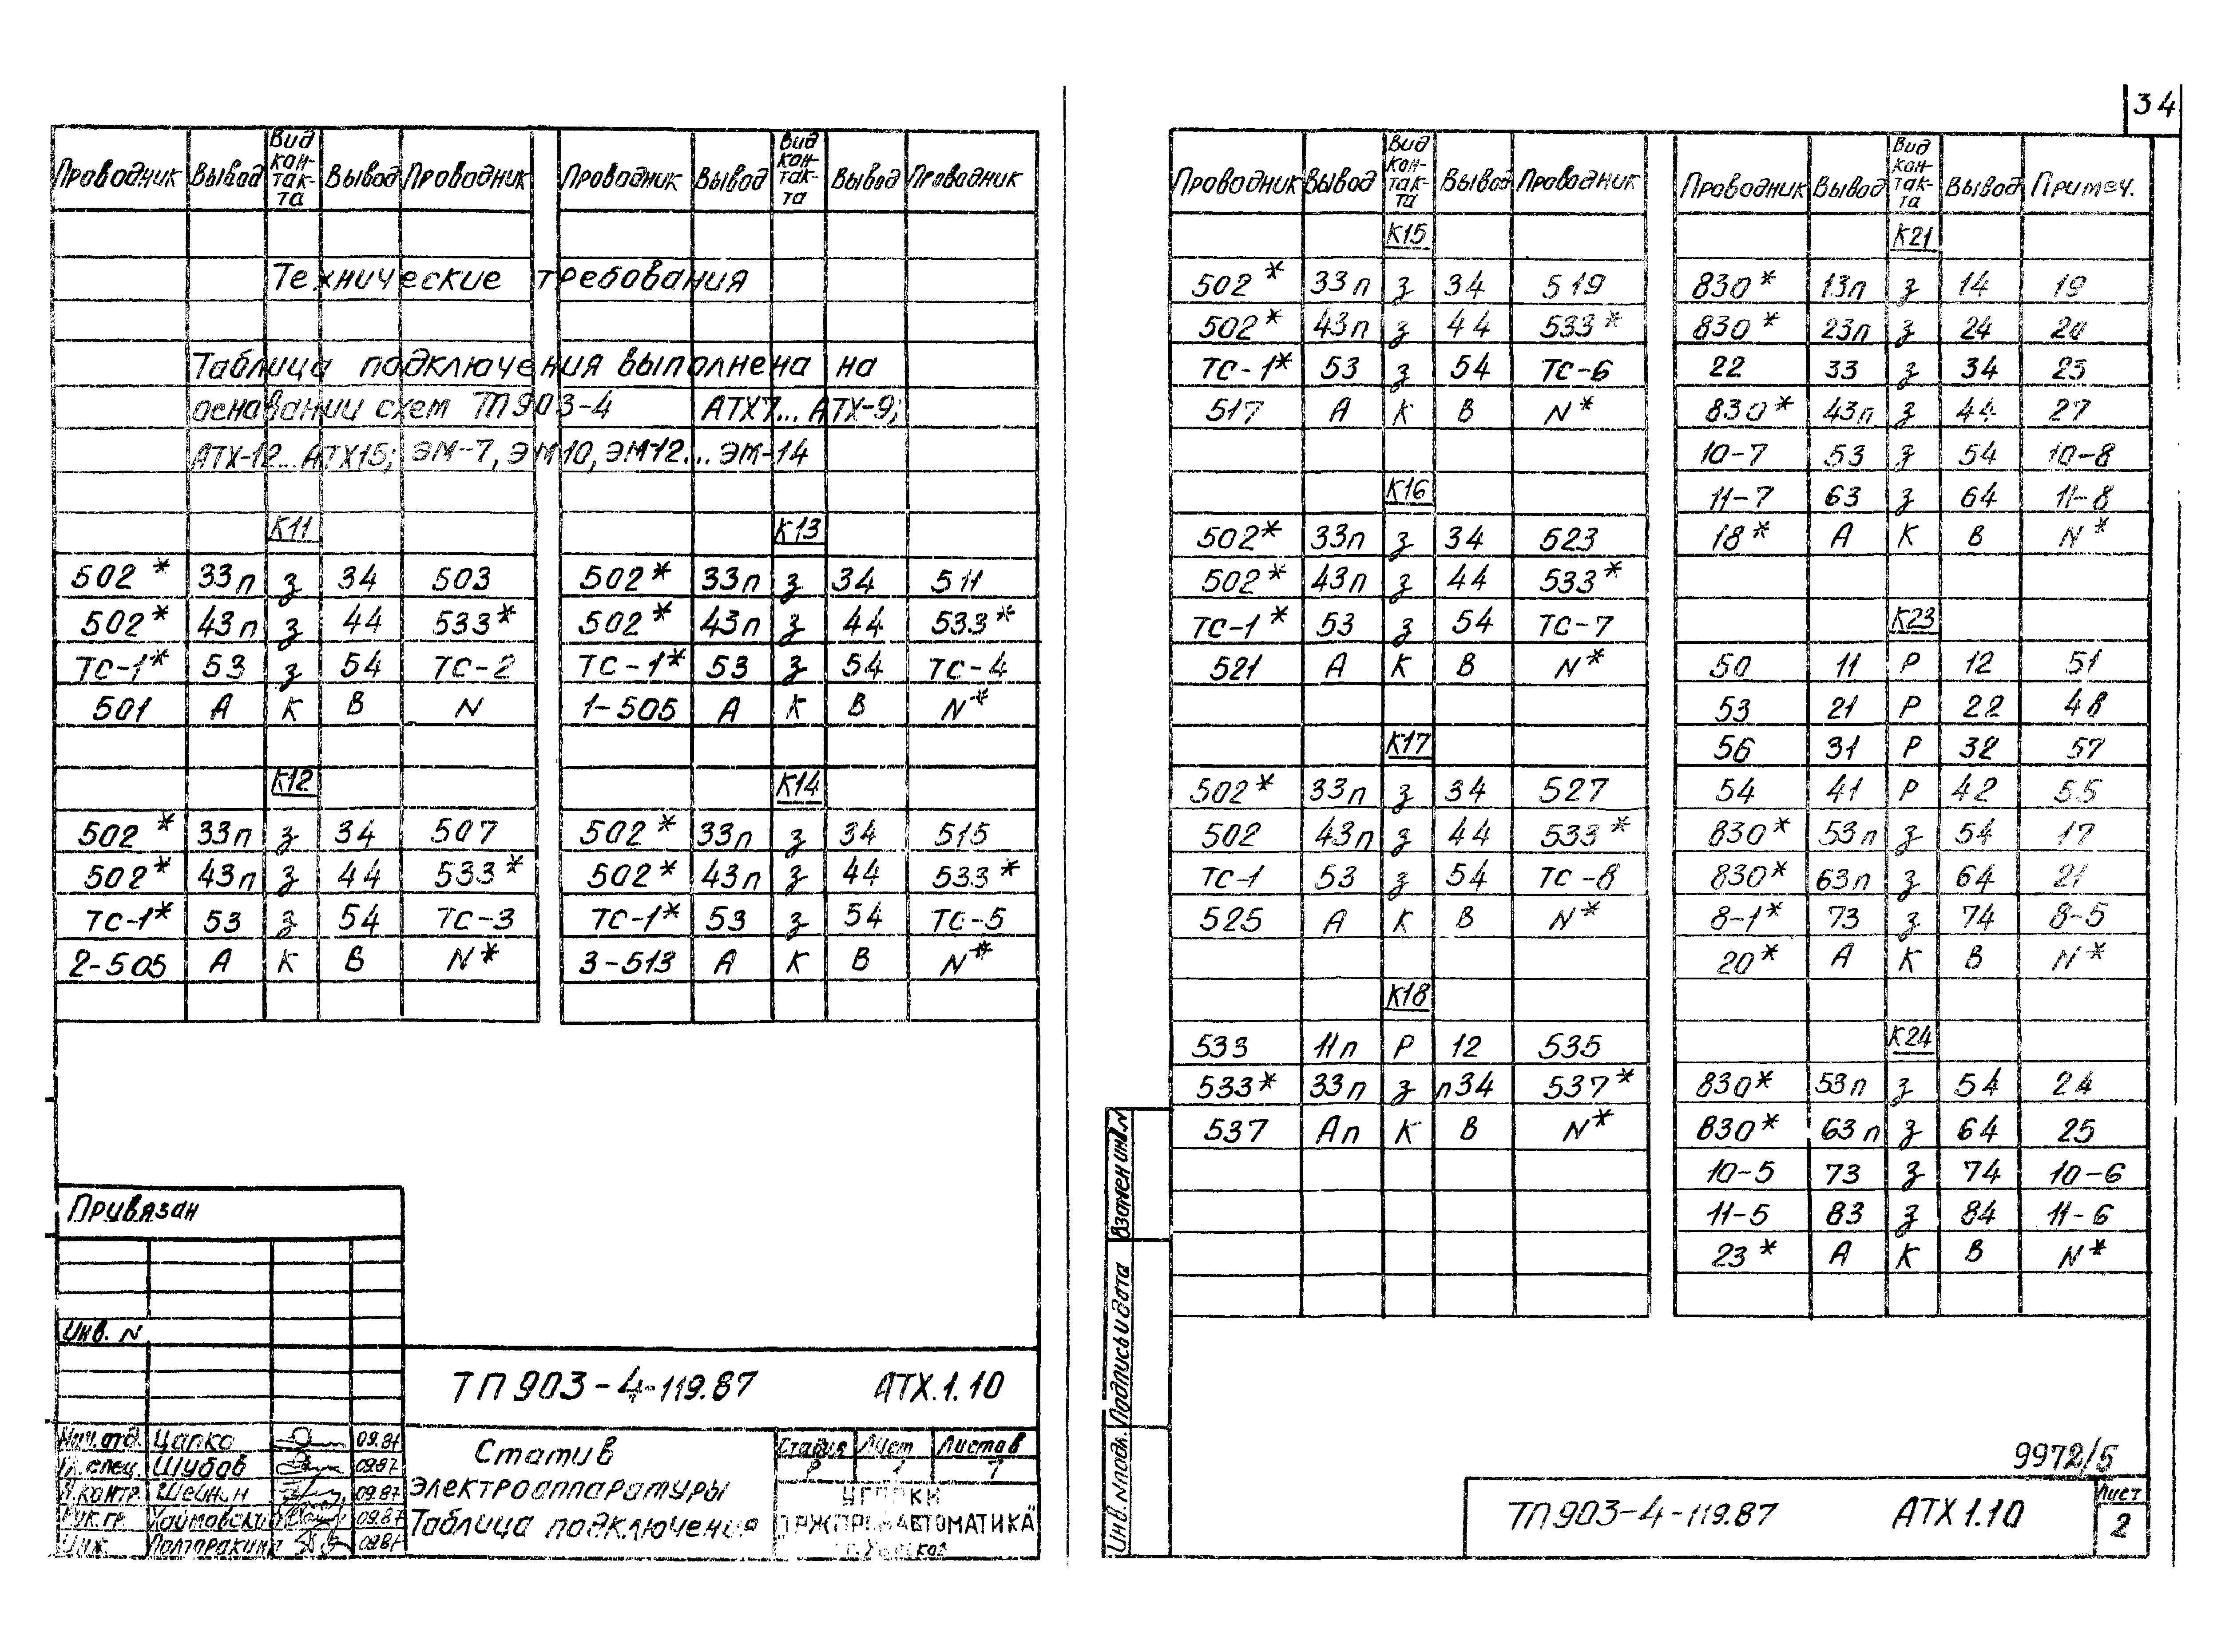 34
Проводник Вывод Вид кон-так-та Вывод Проводник Проводник Вывод Вид кон-так-та Вывод Проводник
Технические требования
Таблица подключения выполнена на
основании схем ТП903-4 АТХ7... АТХ-9;
АТХ-12... АТХ15; ЭМ-7, ЭМ10, ЭМ12... ЭМ-14
К11 К13
502* 33п з 34 503 502* 33п з 34 511
502* 43п з 44 533* 502* 43п з 44 533*
ТС-1* 53 з 54 ТС-2 ТС-1* 53 з 54 ТС-4
501 А К В N 1-505 А К В N*
К12 К14
502* 33п з 34 507 502* 33п з 34 515
502* 43п з 44 533* 502* 43п з 44 533*
ТС-1* 53 з 54 ТС-3 ТС-1* 53 з 54 ТС-5
2-505 А К В N* 3-513 А К В N*
Привязан
Инв. N
ТП903-4-119.87 АТХ.1.10
Нач.отд. Цапко 09.87
Гл.спец. Шубов 09.87
Н.контр. Шейнин 09.87
Рук.гр. 09.87
Инж. 09.87
Статив
электроаппаратуры
Таблица подключения
Стадия Лист Листов
Р 1 7
Проводник Вывод Вид кон-так-та Вывод Проводник Проводник Вывод Вид кон-так-та Вывод Примеч.
К15 К21
502* 33п з 34 519 830* 13п з 14 19
502* 43п з 44 533* 830* 23п з 24 20
ТС-1* 53 з 54 ТС-6 22 33 з 34 23
517 А К В N* 830* 43п з 44 27
10-7 53 з 54 10-8
К16 11-7 63 з 64 11-8
502* 33п з 34 523 18* А К В N*
502* 43п з 44 533*
ТС-1* 53 з 54 ТС-7 К23
521 А К В N* 50 11 Р 12 51
53 21 Р 22 48
К17 56 31 Р 32 57
502* 33п з 34 527 54 41 Р 42 55
502 43п з 44 533* 830* 53п з 54 17
ТС-1 53 з 54 ТС-8 830* 63п з 64 21
525 А К В N* 8-1* 73 з 74 8-5
20* А К В N*
К18
533 11п Р 12 535 К24
533* 33п з п34 537* 830* 53п з 54 24
537 Ап К В N* 830* 63п з 64 25
10-5 73 з 74 10-6
11-5 83 з 84 11-6
23* А К В N*
Взамен инв.N
Подпись и дата
Инв. N подл.
9972/5
ТП903-4-119.87 АТХ1.10
Лист
2